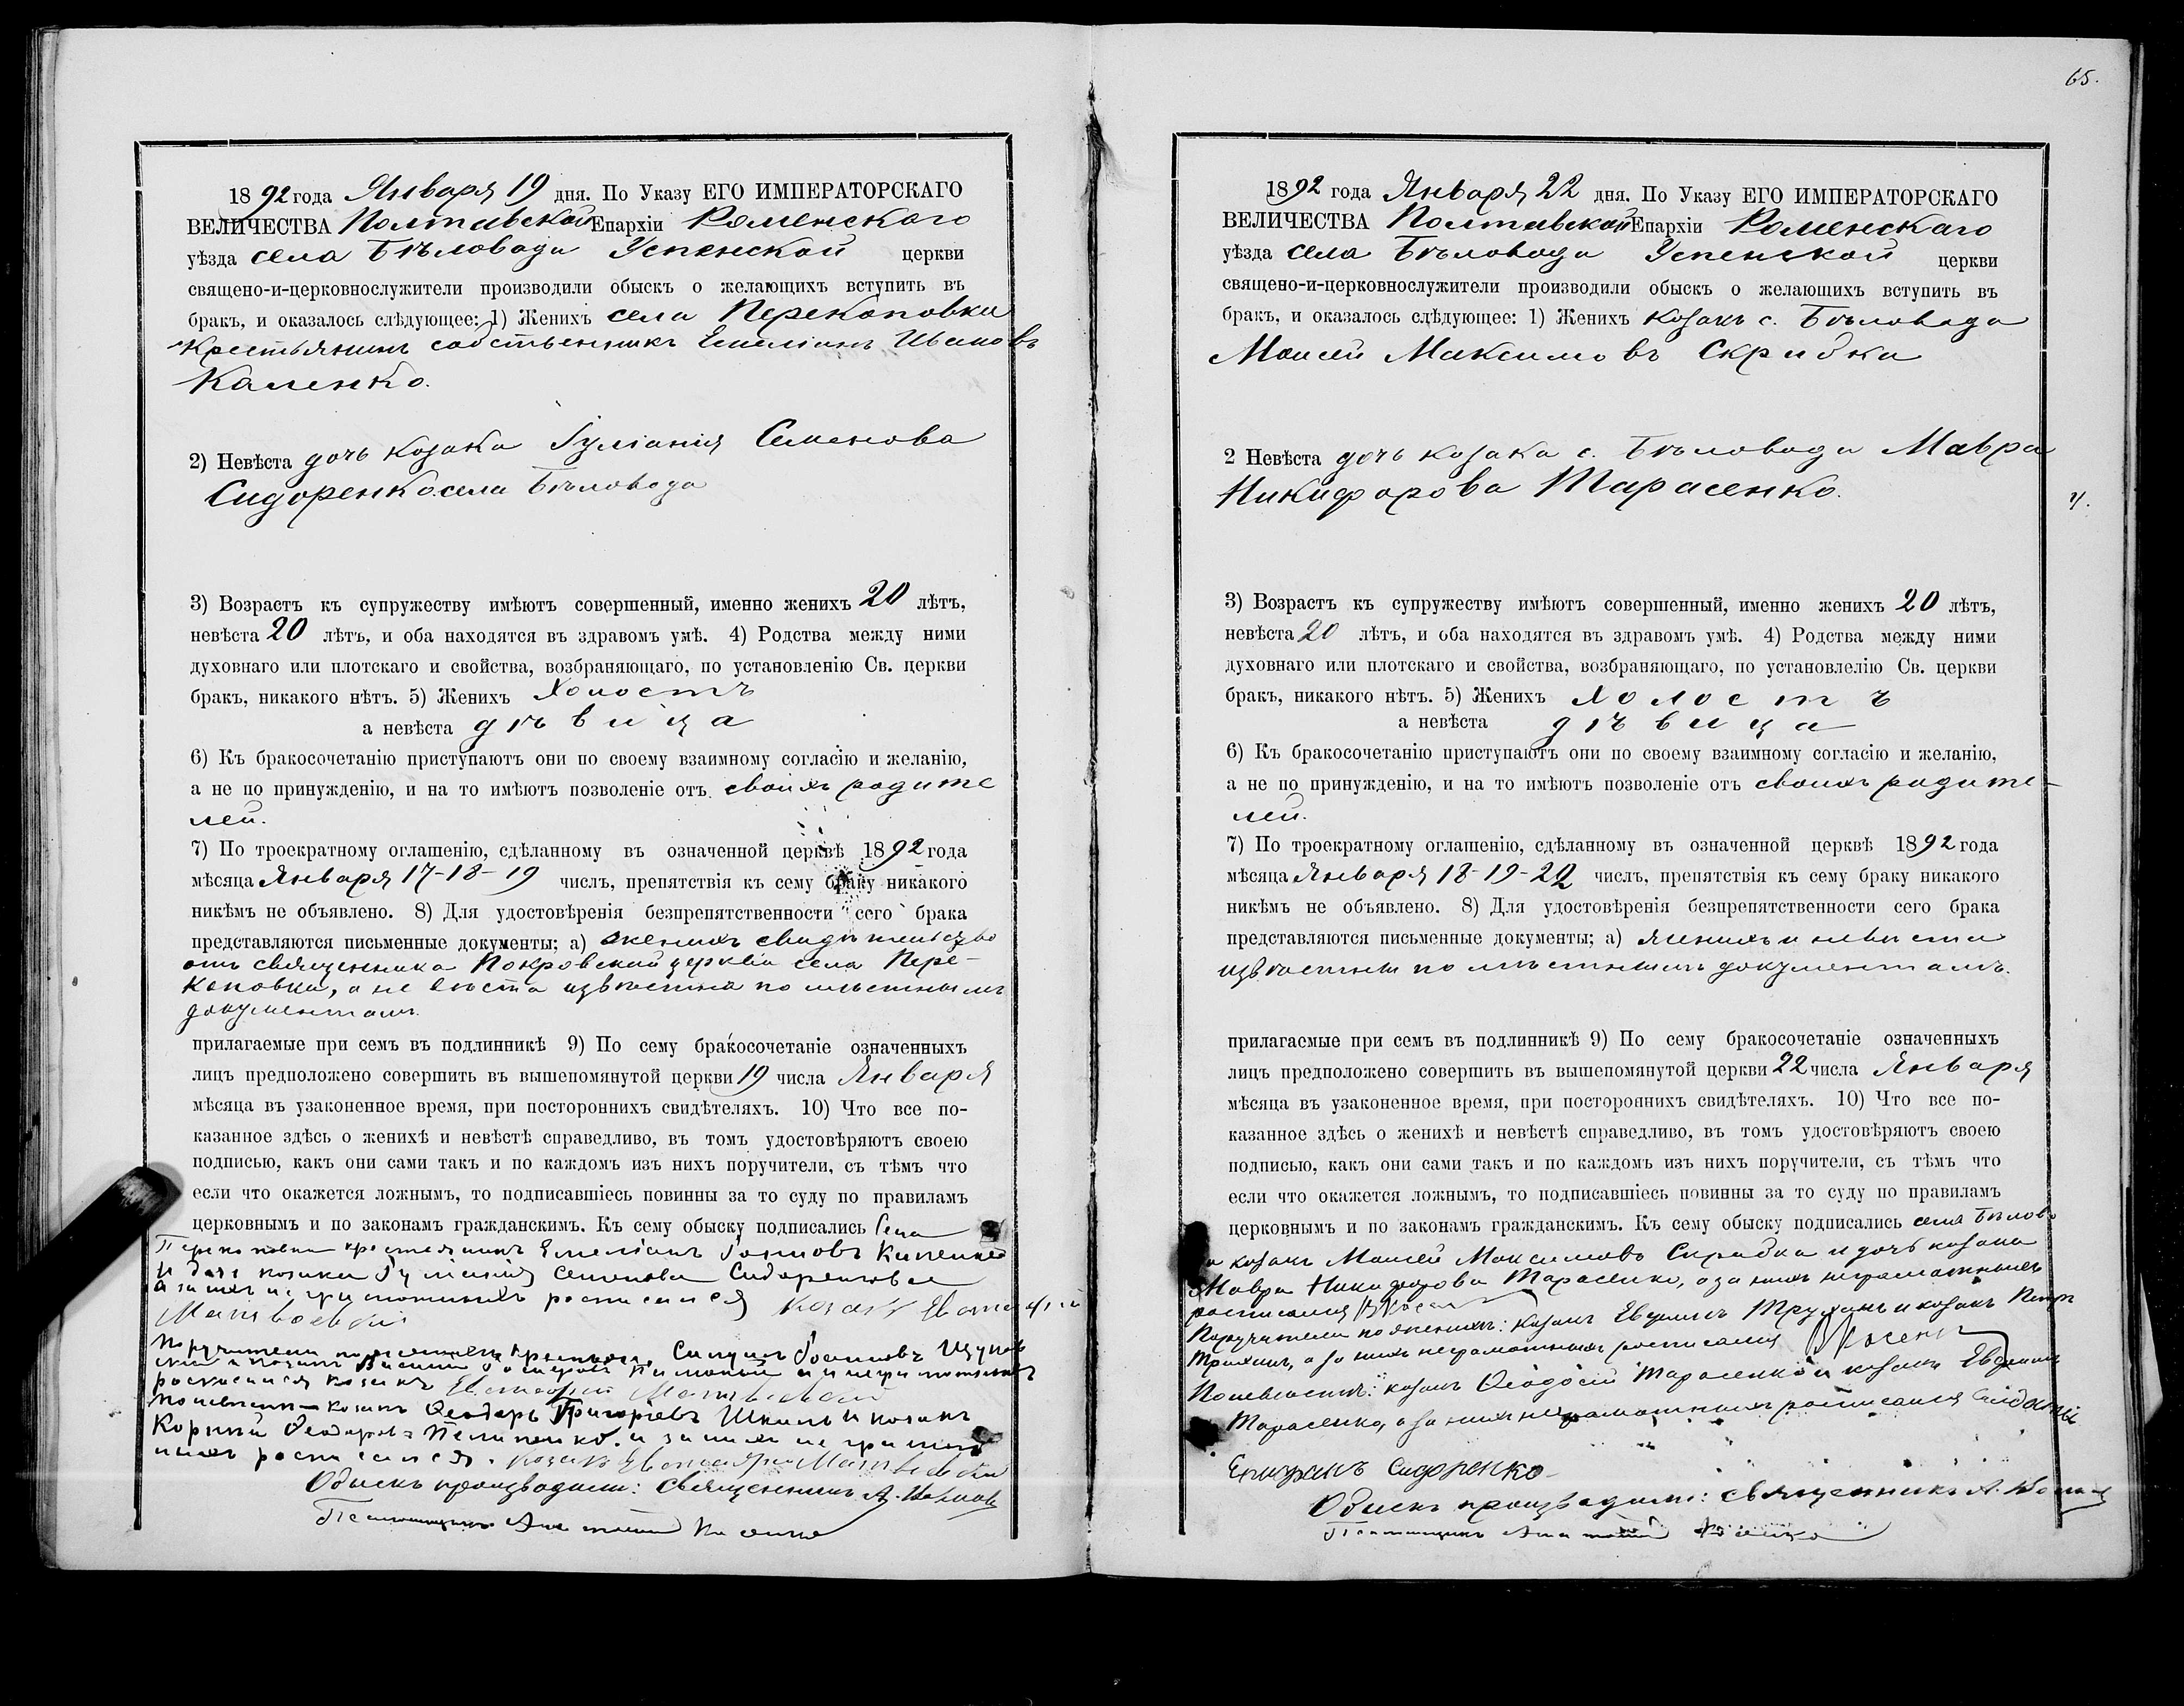 1892 года Января 19 дня. По Указу ЕГО ИМПЕРАТОРСКАГО
ВЕЛИЧЕСТВА Полтавской Епархіи Роменскаго
уѣзда села Бѣловода Успенской церкви
священо-и-церковнослужители производили обыскъ о желающихъ вступить въ
бракъ, и оказалось слѣдующее: 1) Женихъ села Перекоповки
Крестьянинъ собственникъ Емеліанъ Ивановъ
2) Невѣста дочь козака Іуліанія Семенова
Сидоренко села Бѣловода
3) Возрастъ къ супружеству имѣютъ совершенный, именно женихъ 20 лѣтъ,
невѣста 20 лѣтъ, и оба находятся въ здравомъ умѣ. 4) Родства между ними
духовнаго или плотскаго и свойства, возбраняющаго, по установленію Св. церкви
бракъ, никакого нѣтъ. 5) Женихъ холостъ
а невѣста дѣвица
6) Къ бракосочетанію приступаютъ они по своему взаимному согласію и желанію,
а не по принужденію, и на то имѣютъ позволеніе отъ своихъ родите
лей.
7) По троекратному оглашенію, сдѣланному въ означенной церквѣ 1892 года
мѣсяца Января 17-18-19 числъ, препятствія къ сему браку никакого
никѣмъ не объявлено. 8) Для удостовѣренія безпрепятственности сего брака
представляются письменные документы; а) женихъ свидѣтельство
отъ священника Покровской церкви села Пере-
коповки, а невѣста извѣстна по мѣстнымъ
документамъ.
прилагаемые при семъ въ подлинникѣ 9) По сему бракосочетаніе означенныхъ
лицъ предположено совершить въ вышепомянутой церкви 19 числа Января
мѣсяца въ узаконенное время, при постороннихъ свидѣтеляхъ. 10) Что все по-
казанное здѣсь о женихѣ и невѣстѣ справедливо, въ томъ удостовѣряютъ своею
подписью, какъ они сами такъ и по каждомъ изъ нихъ поручители, съ тѣмъ что
если что окажется ложнымъ, то подписавшіесь повинны за то суду по правиламъ
церковнымъ и по законамъ гражданскимъ. Къ сему обыску подписались Села
Перекоповки крестьянинъ Емеліанъ
и дочь козака Іуліанія Семенова Сидоренкова
а за нихъ неграмотныхъ росписался Козакъ
Поручители по женихѣ
росписался козакъ
по невѣстѣ козакъ Ѳеодоръ Григоріевъ Шкиль и козакъ
Корній Ѳеодоровъ и за нихъ неграмот
ныхъ росписался. козакъ
Обыскъ производили: Священникъ А.
Псаломщикъ
65.
1892 года Января 22 дня. По Указу ЕГО ИМПЕРАТОРСКАГО
ВЕЛИЧЕСТВА Полтавской Епархіи Роменскаго
уѣзда села Бѣловода Успенской церкви
священо-и-церковнослужители производили обыскъ о желающихъ вступить въ
бракъ, и оказалось слѣдующее: 1) Женихъ козакъ с. Бѣловода
Моисей Максимовъ Скрибка
2 Невѣста дочь козака с. Бѣловода Мавра
Никифорова Тарасенко.
ч.
3) Возрастъ къ супружеству имѣютъ совершенный, именно женихъ 20 лѣтъ,
невѣста 20 лѣтъ, и оба находятся въ здравомъ умѣ. 4) Родства между ними
духовнаго или плотскаго и свойства, возбраняющаго, по установлелію Св. церкви
бракъ, никакого нѣтъ. 5) Женихъ холостъ
а невѣста дѣвица
6) Къ бракосочетанію приступаютъ они по своему взаимному согласію и желанію,
а не по принужденію, и на то имѣютъ позволеніе отъ своихъ родите-
лей.
7) По троекратному оглашенію, сдѣланному въ означенной церквѣ 1892 года
мѣсяца Января 18-19-22 числъ, препятствія къ сему браку никакого
никѣмъ не объявлено. 8) Для удостовѣренія безпрепятственности сего брака
представляются письменные документы; а) женихъ и невѣста
извѣстны по мѣстнымъ документамъ.
прилагаемые при семъ въ подлинникѣ 9) По сему бракосочетаніе означенныхъ
лицъ предположено совершить въ вышепомянутой церкви 22 числа Января
мѣсяца въ узаконенное время, при постороннихъ свидѣтеляхъ. 10) Что все по-
казанное здѣсь о женихѣ и невѣстѣ справедливо, въ томъ удостовѣряютъ своею
подписью, какъ они сами такъ и по каждомъ изъ нихъ поручители, съ тѣмъ что
если что окажется ложнымъ, то подписавшіесь повинны за то суду по правиламъ
церковнымъ и по законамъ гражданскимъ. Къ сему обыску подписались села Бѣлово
да козакъ Моисей Максимовъ Скрибка и дочь козака
Мавра Никифорова Тарасенко, а за нихъ неграмотныхъ
росписался
Поручители по женихѣ: козакъ Евфимъ и козакъ Петръ
а за нихъ неграмотныхъ росписался
По невѣстѣ: козакъ Ѳеодосій Тарасенко и козакъ Евдокимъ
Тарасенко, а за нихъ неграмотныхъ росписался
Епифанъ Сидоренко
Обыскъ производили: священникъ А.
Псаломщикъ